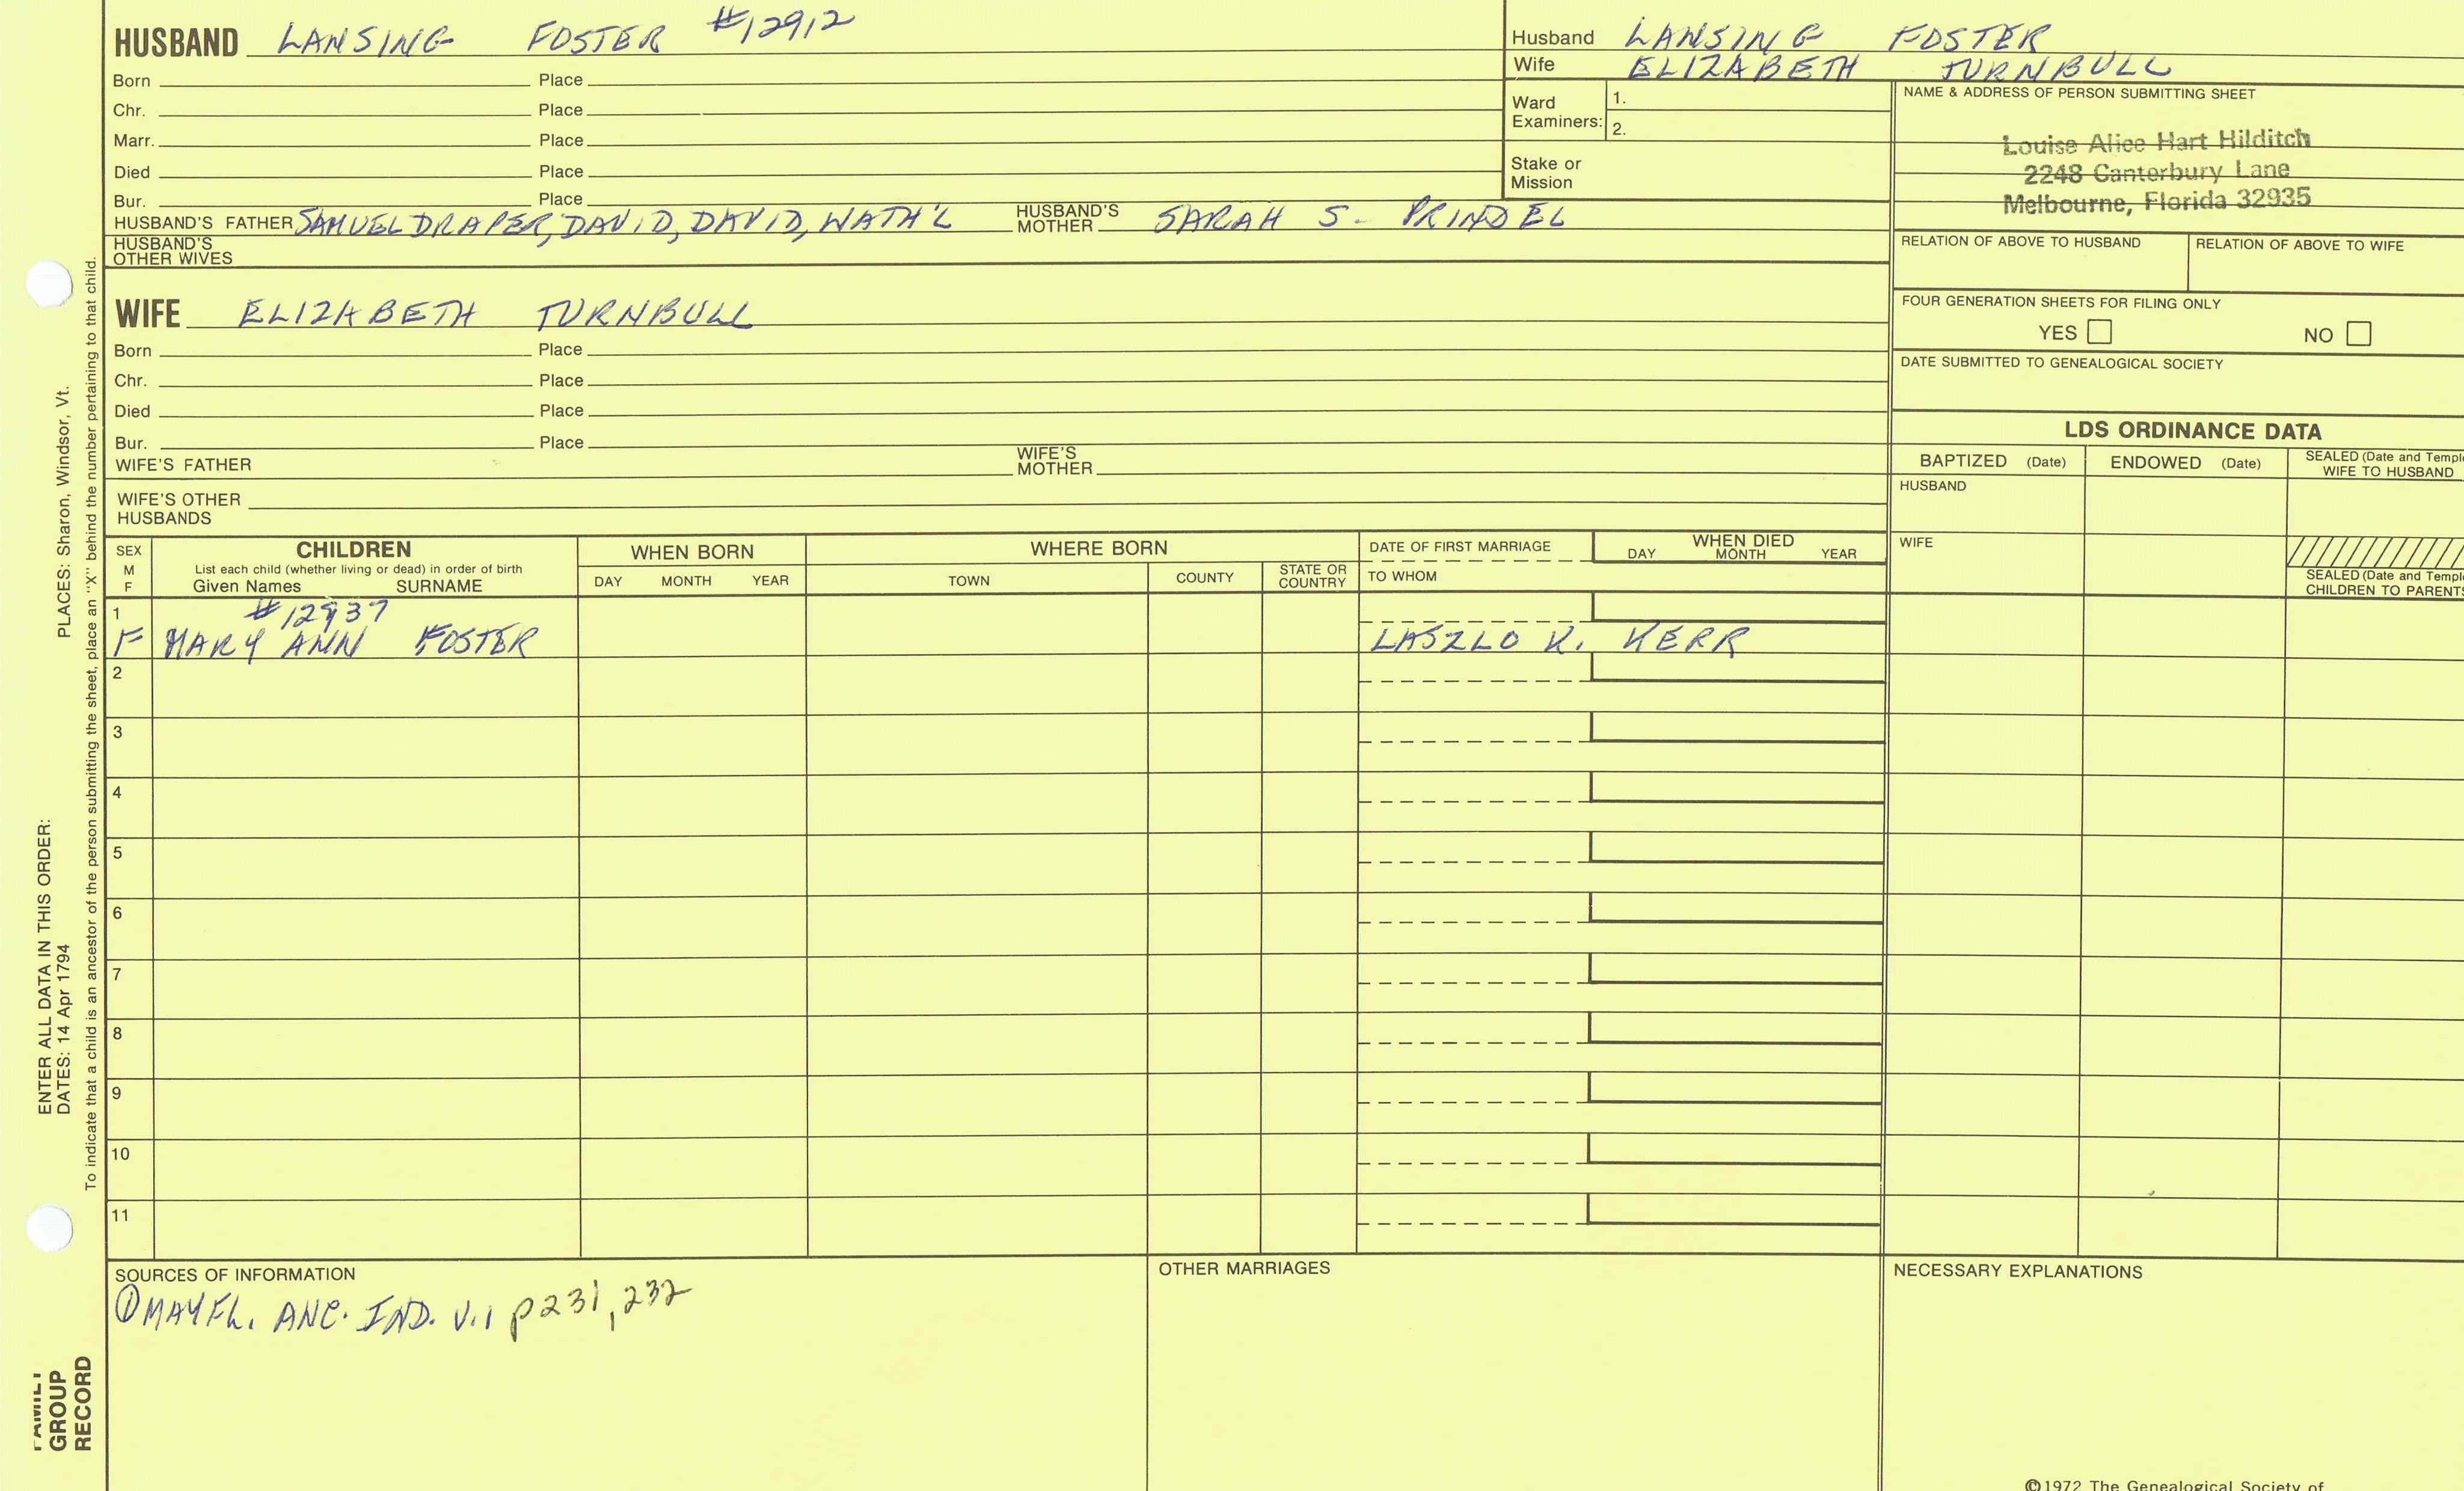 HUSBAND LANSING FOSTER #12912
Born Place
Chr. Place
Marr. Place
Died Place
Bur. Place
HUSBAND'S FATHER SAMUEL DRAPER, DAVID, DAVID, NATH'L HUSBAND'S MOTHER SARAH S. PRINDEL
HUSBAND'S OTHER WIVES
WIFE ELIZABETH TURNBULL
Born Place
Chr. Place
Died Place
Bur. Place
WIFE'S FATHER WIFE'S MOTHER
WIFE'S OTHER HUSBANDS
Husband LANSING FOSTER
Wife ELIZABETH TURNBULL
Ward Examiners: 1.
2.
Stake or Mission
NAME & ADDRESS OF PERSON SUBMITTING SHEET
Louise Alice Hart Hilditch
2248 Canterbury Lane
Melbourne, Florida 32935
RELATION OF ABOVE TO HUSBAND RELATION OF ABOVE TO WIFE
FOUR GENERATION SHEETS FOR FILING ONLY
YES NO
DATE SUBMITTED TO GENEALOGICAL SOCIETY
LDS ORDINANCE DATA
BAPTIZED (Date) ENDOWED (Date) SEALED (Date and Templ
WIFE TO HUSBAND
HUSBAND
WIFE
SEALED (Date and Templ
CHILDREN TO PARENTS
SEX M F CHILDREN WHEN BORN WHERE BORN DATE OF FIRST MARRIAGE WHEN DIED
List each child (whether living or dead) in order of birth
Given Names SURNAME DAY MONTH YEAR TOWN COUNTY STATE OR COUNTRY TO WHOM DAY MONTH YEAR
1 #12937
F MARY ANN FOSTER LASZLO K. KERR
2
3
4
5
6
7
8
9
10
11
SOURCES OF INFORMATION
① MAYFL. ANC. IND. V.1 p231, 232
OTHER MARRIAGES
NECESSARY EXPLANATIONS
©1972 The Genealogical Society of
ENTER ALL DATA IN THIS ORDER:
DATES: 14 Apr 1794 PLACES: Sharon, Windsor, Vt.
To indicate that a child is an ancestor of the person submitting the sheet, place an "X" behind the number pertaining to that child.
FAMILY
GROUP
RECORD